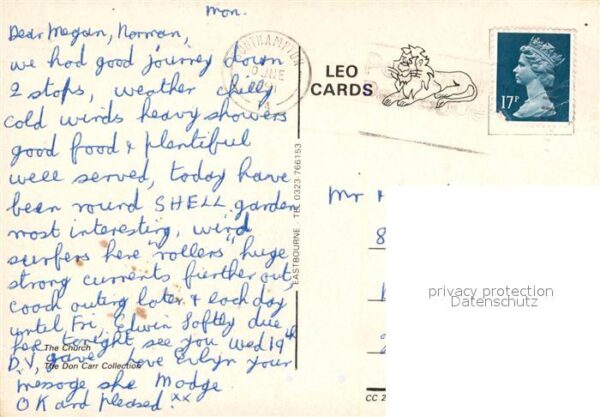 Mon.
Dear Megan, Norman,
we had good journey down
2 stops, weather chilly
cold winds heavy showers
good food & plentiful
well served, today have
been round SHELL garden
most interesting, wind
surfers here "rollers" huge
strong currents further out,
coach outing later & each day
until Fri, Edwin Softley due
here tonight see you Wed 19th
D.V, gave Love Evlyn your
message she Madge
OK and pleased. xx
The Church
The Don Carr Collection
EASTBOURNE TEL 0323-766153
LEO
CARDS
17P
Mr
8
privacy protection
Datenschutz
CC 2